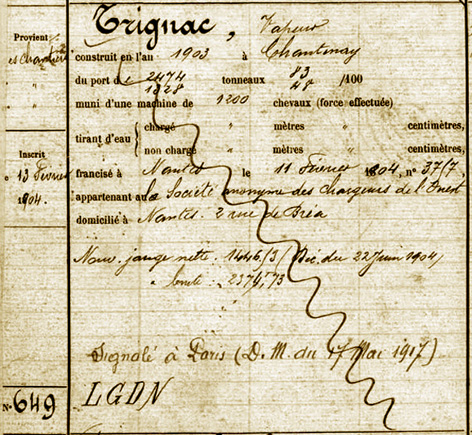 Trignac, Vapeur
Provient
construit en l'an 1903 à Chantenay
du port de 2474 tonneaux 83 /100
1328 48
muni d'une machine de 1200 chevaux (force effectuée)
tirant d'eau { chargé " mètres " centimètres,
non chargé " mètres " centimètres,
Inscrit
13 Février
1904.
francisé à Nantes le 11 Février 1904, n° 37/7.
appartenant à la Société anonyme des Chargeurs de l'Ouest
domicilié à Nantes. 2 rue de Bréa
Nouv. jauge nette. 1446/3/ Déc. du 22 Juin 1904/
" brute. 2374,73
Signalé à Paris (D. M. du 17 Mai 1917)
N° 649
LGDN